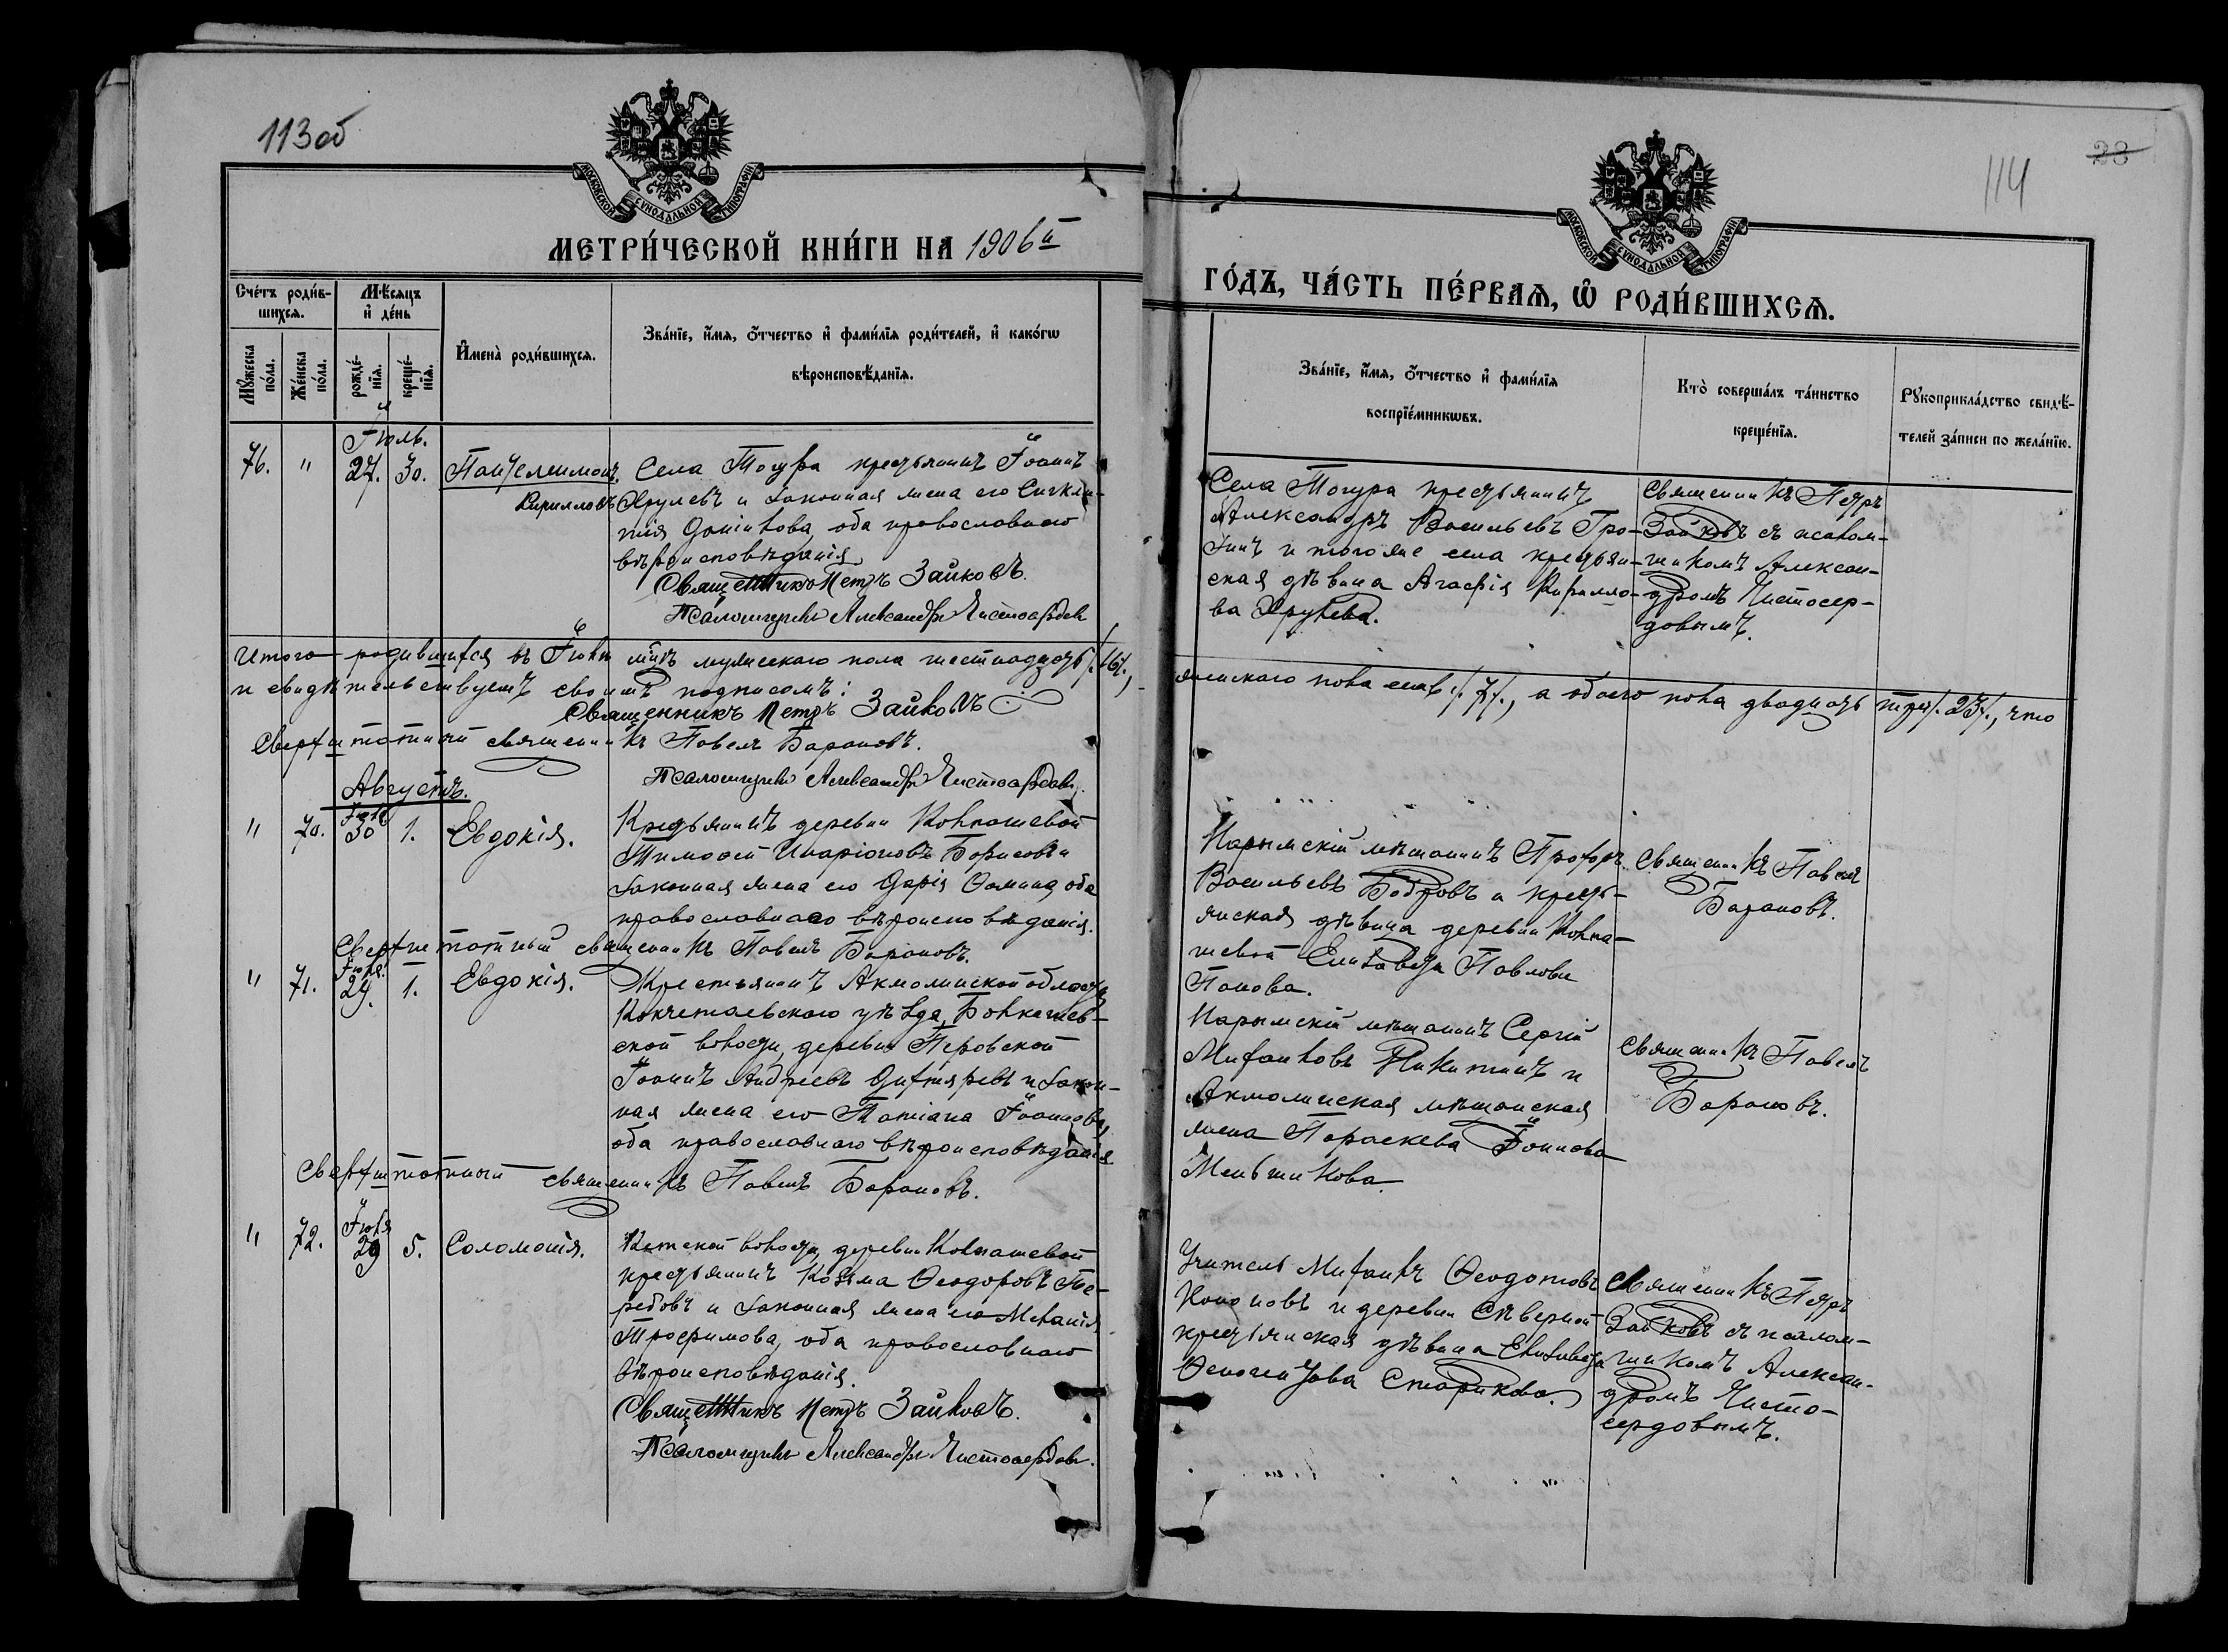 113об
МОСКОВСКОЙ СѴНОДАЛЬНОЙ ТИПОГРАФІИ
МЕТРИ́ЧЕСКОЙ КНИ́ГИ НА 1906й
Сче́тъ роди́в-
шихся.
Мѣсяцъ
и҆ де́нь
Мꙋжеска
по́ла.
Же́нска
по́ла.
рожде́-
нїѧ.
креще́-
нїѧ.
И҆мена̀ роди́вшихсѧ.
Зва́нїе, и҆́мѧ, ѻ҆́тчество и҆ фами́лїѧ роди́телей, и҆ како́гѡ
вѣроисповѣ́данїѧ.
Іюль.
76. " 27. 30. Пантелеимонъ. Села Тогура крестьянинъ Іоаннъ
Кирилловъ Хрулевъ и законная жена его Синкли-
тія Данилова, оба православнаго
вѣроисповѣданія
Священникъ Петръ Зайковъ.
Псаломщикъ Александръ Чистосердовъ
Итого родившихся въ Іюлѣ мцѣ мужескаго пола шестнадцать /16/,
и свидѣтельствуемъ своимъ подписомъ:
Священникъ Петръ Зайковъ
Сверхштатный священникъ Павелъ Барановъ.
Псаломщикъ Александръ Чистосердовъ.
Августъ.
" 70. Іюля 30 1. Евдокія. Крестьянинъ деревни Колпашевой
Тимофей Иларіоновъ Борисовъ и
законная жена его Дарія Ѳомина, оба
православнаго вѣроисповѣданія.
Сверхштатный священникъ Павелъ Барановъ.
" 71. Іюля 24. 1. Евдокія. Крестьянинъ Акмолинской области
Кокчетавскаго уѣзда,
ской волости, деревни Петровской
Іоаннъ Андреевъ Дихтяревъ и закон-
ная жена его Татіана Іоаннова,
оба православнаго вѣроисповѣданія
Сверхштатный священникъ Павелъ Барановъ.
" 72. Іюля 29 5. Соломонія. Кетской волости, деревни Колпашевой
крестьянинъ Козьма Ѳеодоровъ Те-
ребовъ и законная жена его Меланія
Трофимова, оба православнаго
вѣроисповѣданія.
Священникъ Петръ Зайковъ.
Псаломщикъ Александръ Чистосердовъ.
114
28
МОСКОВСКОЙ СѴНОДАЛЬНОЙ ТИПОГРАФІИ
ГО́ДЪ, ЧА́СТЬ ПЕ́РВАѦ, Ѡ҆ РОДИ́ВШИХСѦ.
Зва́нїе, и҆́мѧ, ѻ҆́тчество и҆ фами́лїѧ
воспрїе́мникѡвъ.
Кто̀ соверша́лъ та́инство
креще́нїѧ.
Рꙋкоприкла́дство свидѣ́-
телей за́писи по жела́нїю.
Села Тогура крестьянинъ
Александръ Васильевъ Про-
зинъ и того же села крестьян-
ская дѣвица Агафія Кирилло-
ва Хрулева.
Священникъ Петръ
Зайковъ съ псалом-
щикомъ Алексан-
дромъ Чистосер-
довымъ.
женскаго пола семь /7/, а обоего пола двадцать три /23/, что
Нарымскій мѣщанинъ Прохоръ
Васильевъ Бобровъ и кресть-
янская дѣвица деревни Колпа-
шевой Елизавета Павлова
Попова.
Священникъ Павелъ
Барановъ.
Нарымскій мѣщанинъ Сергій
Михаиловъ Никитинъ и
Акмолинская мѣщанская
жена Параскева Іоаннова
Меньшикова.
Священникъ Павелъ
Барановъ.
Учитель Михаилъ Ѳеодотовъ
Кононовъ и деревни Сѣверной
крестьянская дѣвица Елизавета
Старикова.
Священникъ Петръ
Зайковъ съ псалом-
щикомъ Алексан-
дромъ Чисто-
сердовымъ.